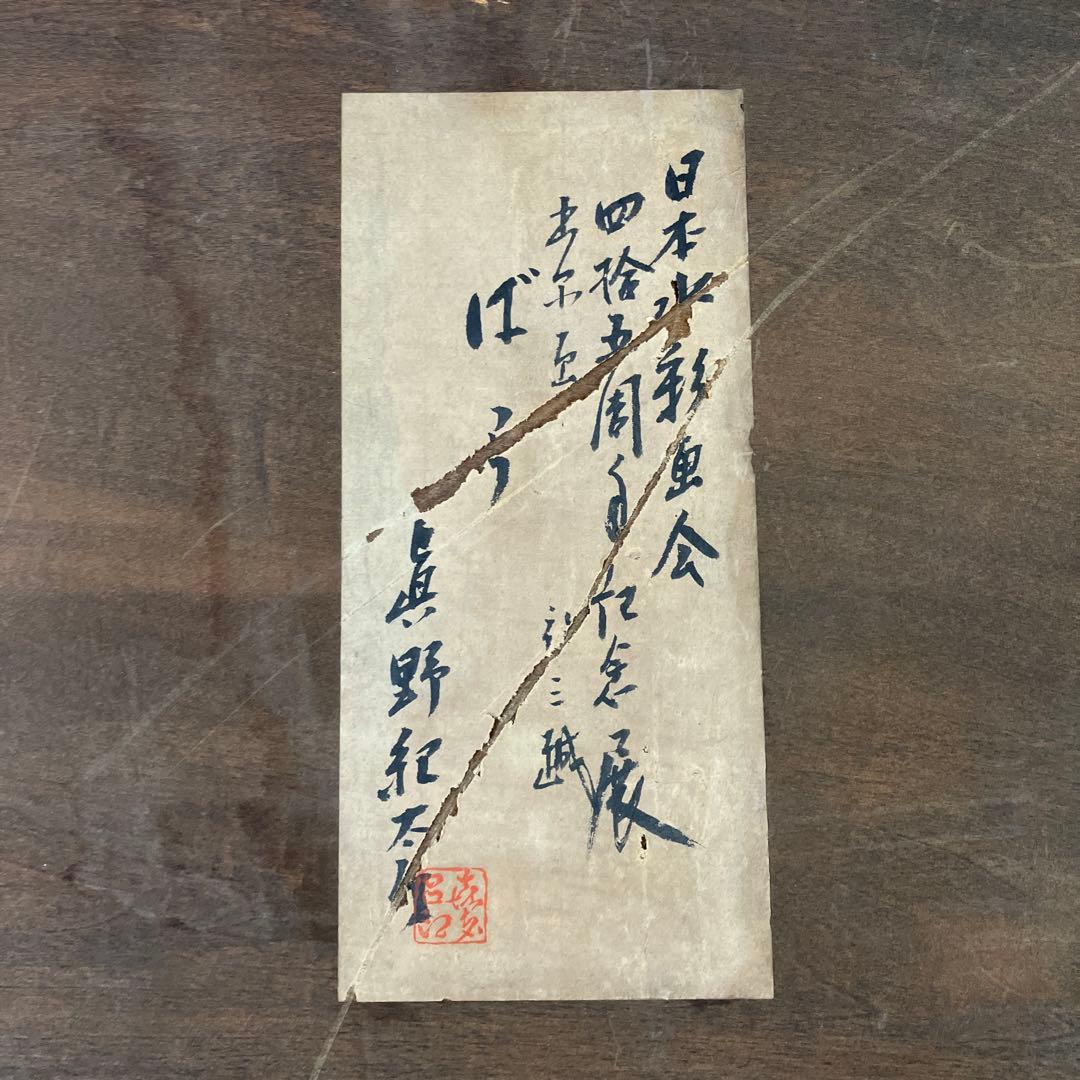 日本水彩画会
四拾五周年記念展
出品画
於三越
ばら
眞野紀太郎